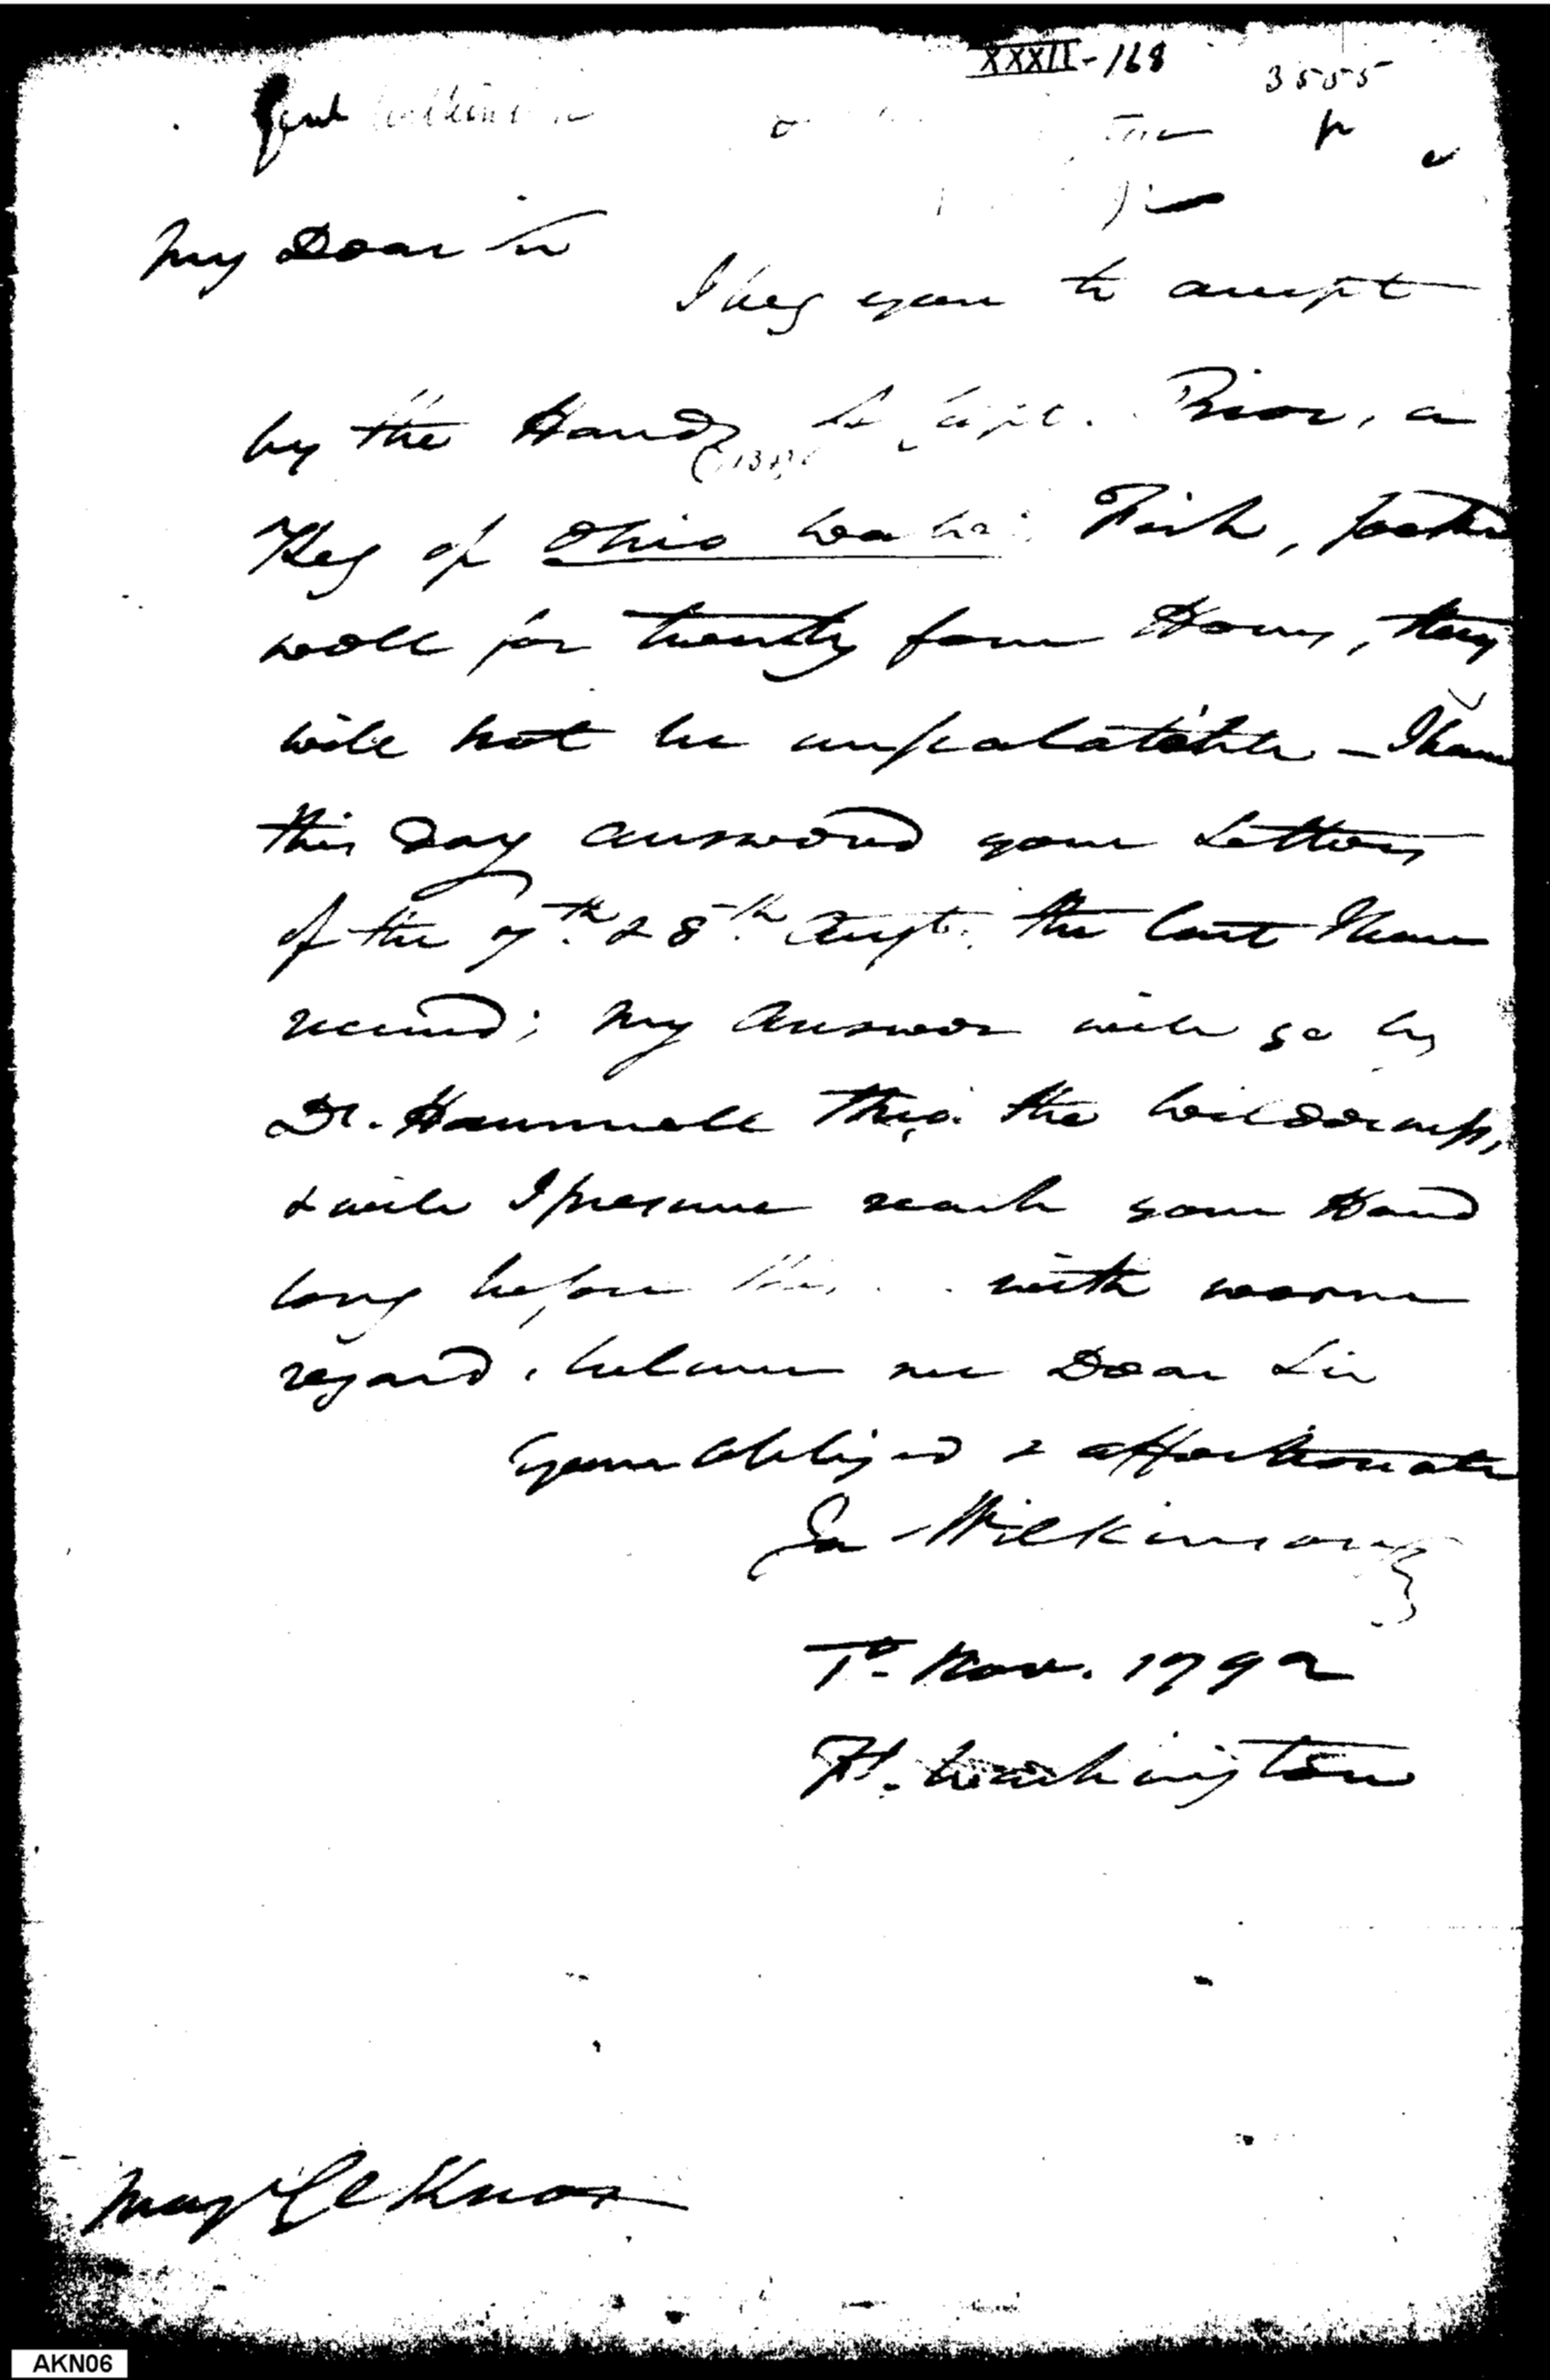 XXXII-168
3555
Genl Wilkinson
My Dear Sir
I beg you to accept
by the Hands of Capt. Prior, a
Keg of Ohio Fish,
well for twenty four Hours, they
will not be unpalatable — I have
this Day answered your Letters
of the 7th. & 8th. Augt. the last I have
received; my Answer will go by
Dr. Hammell thro. the wilderness,
& will I presume reach your Hand
long before this with warm
regard, believe me Dear Sir
your obliged & affectionate
Ja Wilkinson
Nov. 1792
Ft. Washington
Majr Gl Knox
AKN06